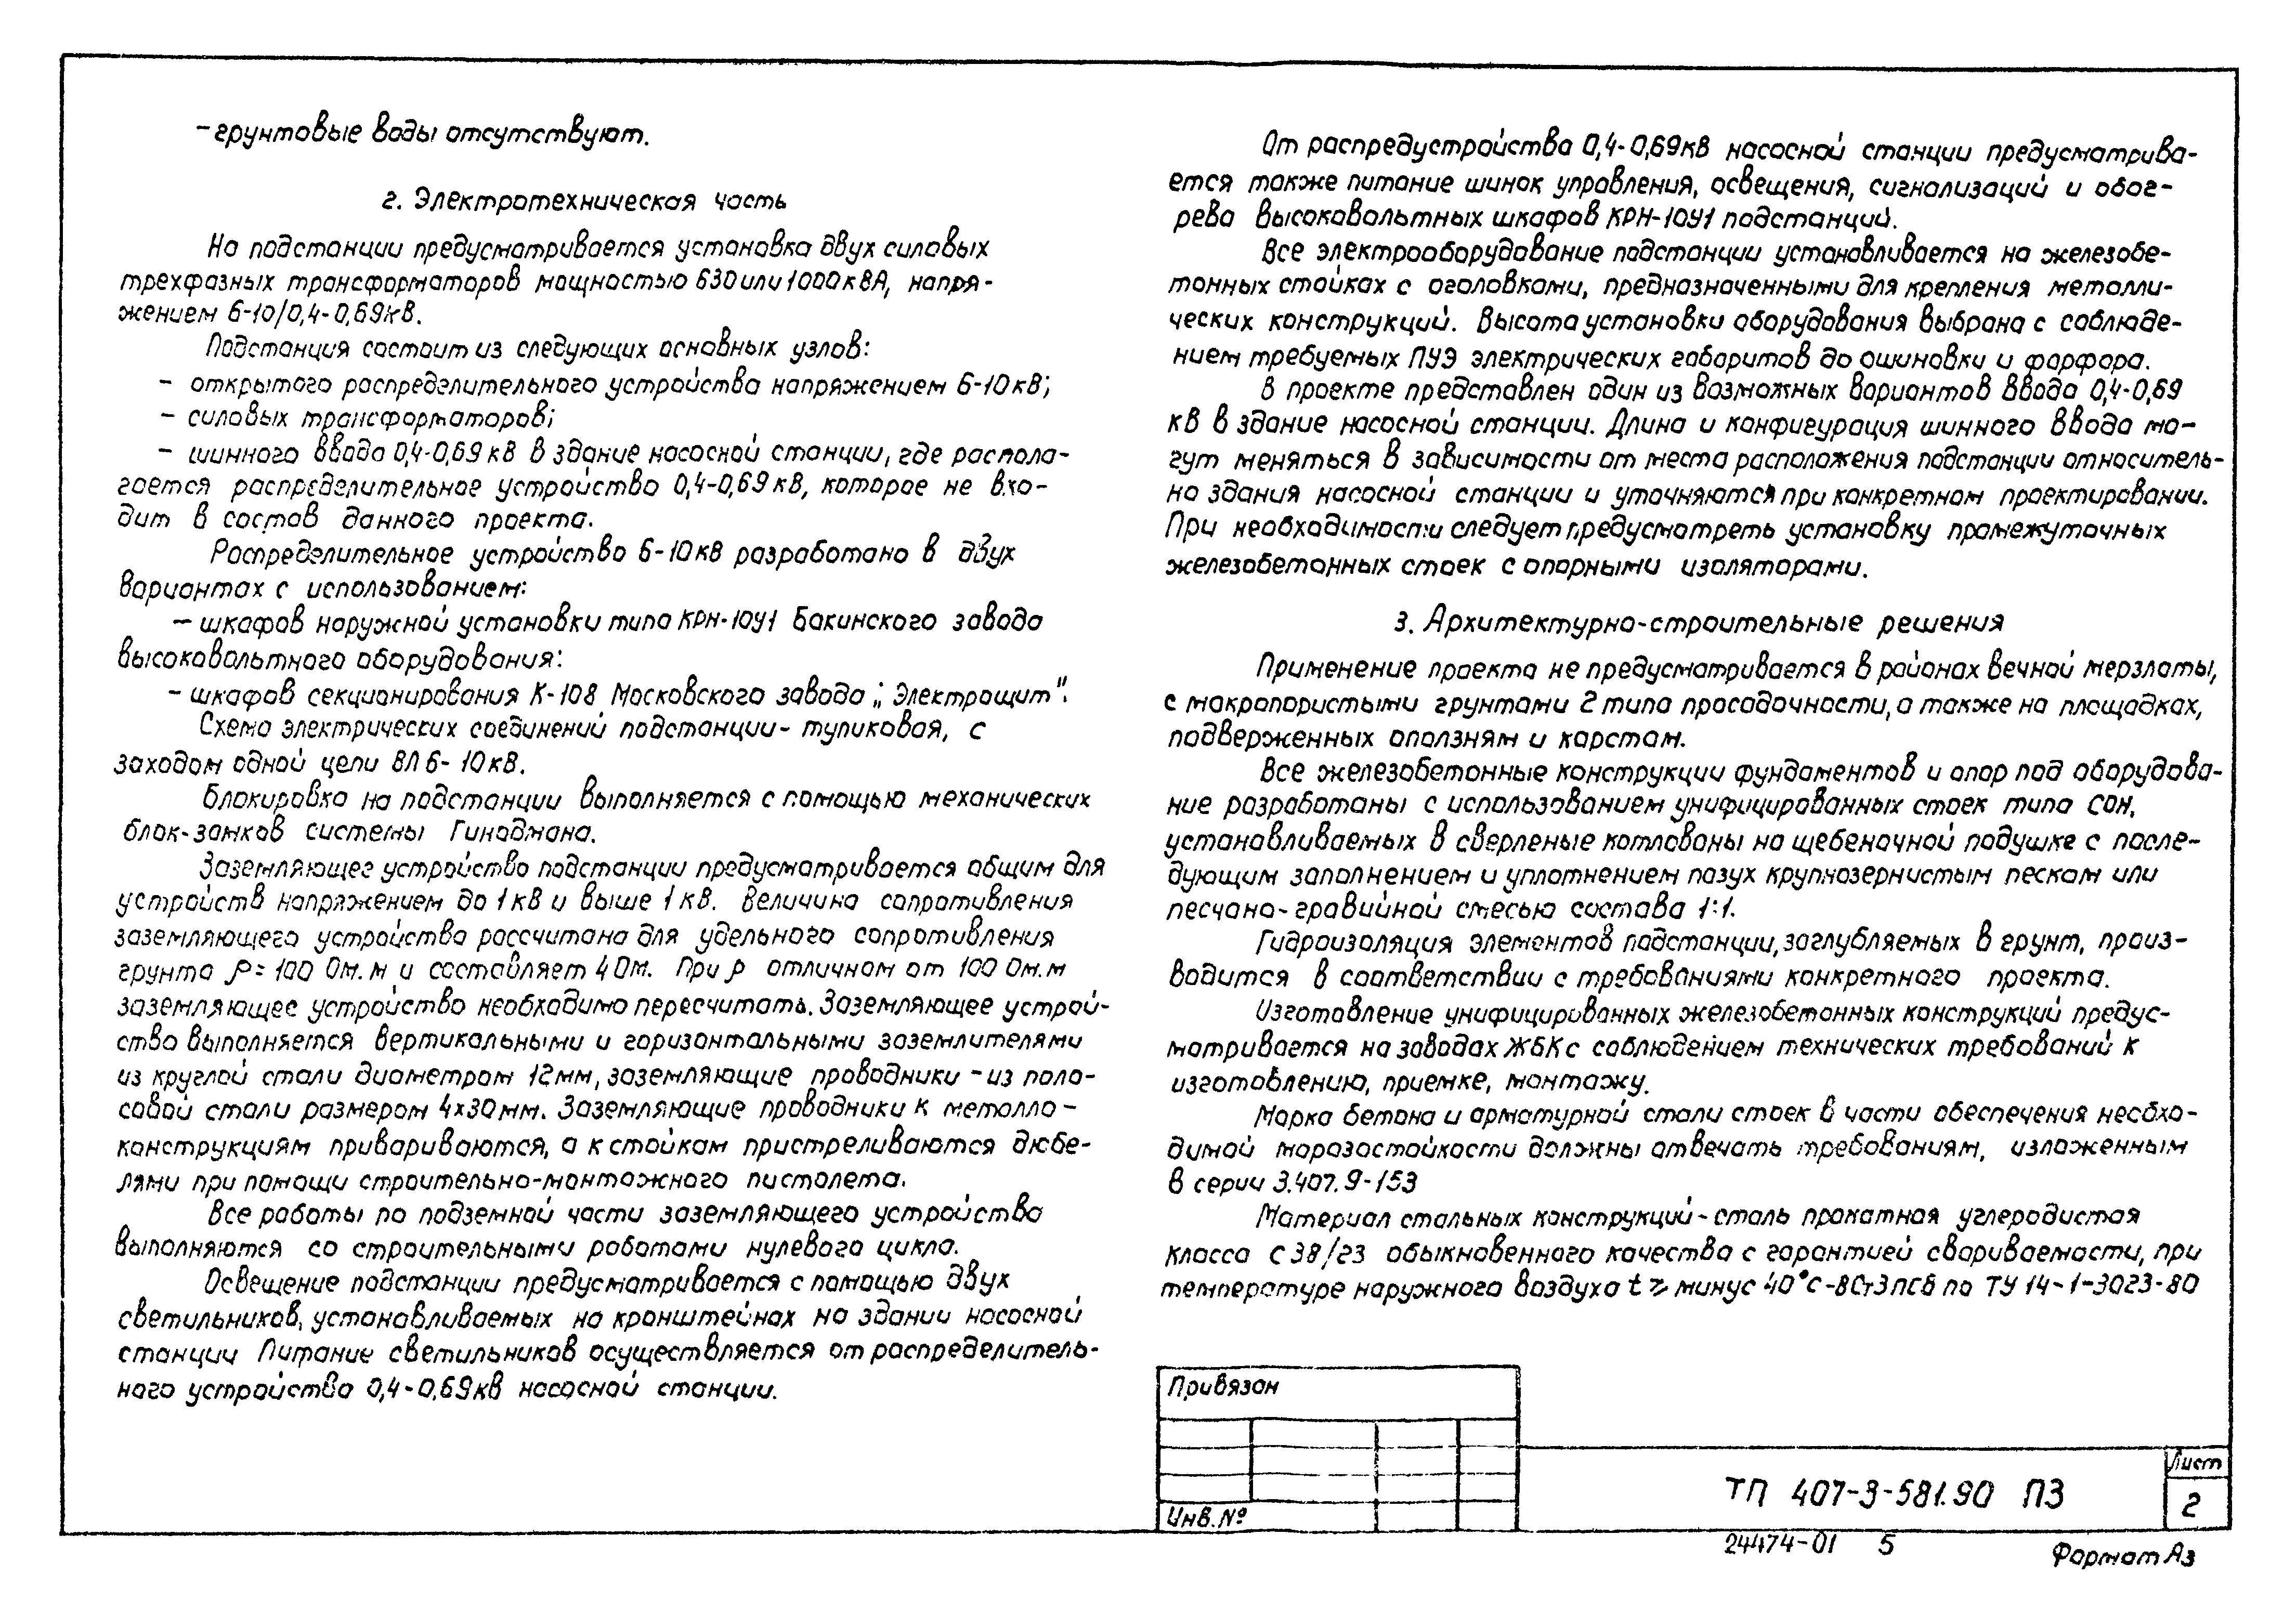 – грунтовые воды отсутствуют.
2. Электротехническая часть
На подстанции предусматривается установка двух силовых
трехфазных трансформаторов мощностью 630 или 1000 кВА, напря-
жением 6-10/0,4-0,69кВ.
Подстанция состоит из следующих основных узлов:
– открытого распределительного устройства напряжением 6-10кВ;
– силовых трансформаторов;
– шинного ввода 0,4-0,69кВ в здание насосной станции, где распола-
гается распределительное устройство 0,4-0,69кВ, которое не вхо-
дит в состав данного проекта.
Распределительное устройство 6-10кВ разработано в двух
вариантах с использованием:
– шкафов наружной установки типа КРН-10У1 Бакинского завода
высоковольтного оборудования:
– шкафов секционирования К-108 Московского завода „Электрощит".
Схема электрических соединений подстанции- тупиковая, с
заходом одной цепи ВЛ 6-10кВ.
Блокировка на подстанции выполняется с помощью механических
блок-замков системы Гинодмана.
Заземляющее устройство подстанции предусматривается общим для
устройств напряжением до 1кВ и выше 1кВ. Величина сопротивления
заземляющего устройства рассчитана для удельного сопротивления
грунта ρ=100 Ом.м и составляет 4 Ом. При ρ отличном от 100 Ом.м
заземляющее устройство необходимо пересчитать. Заземляющее устрой-
ство выполняется вертикальными и горизонтальными заземлителями
из круглой стали диаметром 12мм, заземляющие проводники - из поло-
совой стали размером 4х30мм. Заземляющие проводники к металло-
конструкциям привариваются, а к стойкам пристреливаются дюбе-
лями при помощи строительно-монтажного пистолета.
Все работы по подземной части заземляющего устройства
выполняются со строительными работами нулевого цикла.
Освещение подстанции предусматривается с помощью двух
светильников, устанавливаемых на кронштейнах на здании насосной
станции Питание светильников осуществляется от распределитель-
ного устройства 0,4-0,69кВ насосной станции.
От распредустройства 0,4-0,69кВ насосной станции предусматрива-
ется также питание шинок управления, освещения, сигнализаций и обог-
рева высоковольтных шкафов КРН-10У1 подстанций.
Все электрооборудование подстанции устанавливается на железобе-
тонных стойках с оголовками, предназначенными для крепления металли-
ческих конструкций. Высота установки оборудования выбрана с соблюде-
нием требуемых ПУЭ электрических габаритов до ошиновки и фарфора.
В проекте представлен один из возможных вариантов ввода 0,4-0,69
кВ в здание насосной станции. Длина и конфигурация шинного ввода мо-
гут меняться в зависимости от места расположения подстанции относитель-
но здания насосной станции и уточняются при конкретном проектировании.
При необходимости следует предусмотреть установку промежуточных
железобетонных стоек с опорными изоляторами.
3. Архитектурно-строительные решения
Применение проекта не предусматривается в районах вечной мерзлоты,
с макропористыми грунтами 2 типа просадочности, а также на площадках,
подверженных оползням и карстам.
Все железобетонные конструкции фундаментов и опор под оборудова-
ние разработаны с использованием унифицированных стоек типа СОН,
устанавливаемых в сверленые котлованы на щебеночной подушке с после-
дующим заполнением и уплотнением пазух крупнозернистым песком или
песчано-гравийной смесью состава 1:1.
Гидроизоляция элементов подстанции, заглубляемых в грунт, произ-
водится в соответствии с требованиями конкретного проекта.
Изготовление унифицированных железобетонных конструкций предус-
матривается на заводах ЖБК с соблюдением технических требований к
изготовлению, приемке, монтажу.
Марка бетона и арматурной стали стоек в части обеспечения необхо-
димой морозостойкости должны отвечать требованиям, изложенным
в серии 3.407.9-153
Материал стальных конструкций - сталь прокатная углеродистая
класса С 38/23 обыкновенного качества с гарантией свариваемости, при
температуре наружного воздуха t ⩾ минус 40°С-ВСт3пс6 по ТУ 14-1-3023-80
Привязан
Инв.№
ТП 407-3-581.90 ПЗ
Лист
2
24474-01 5
Формат А3